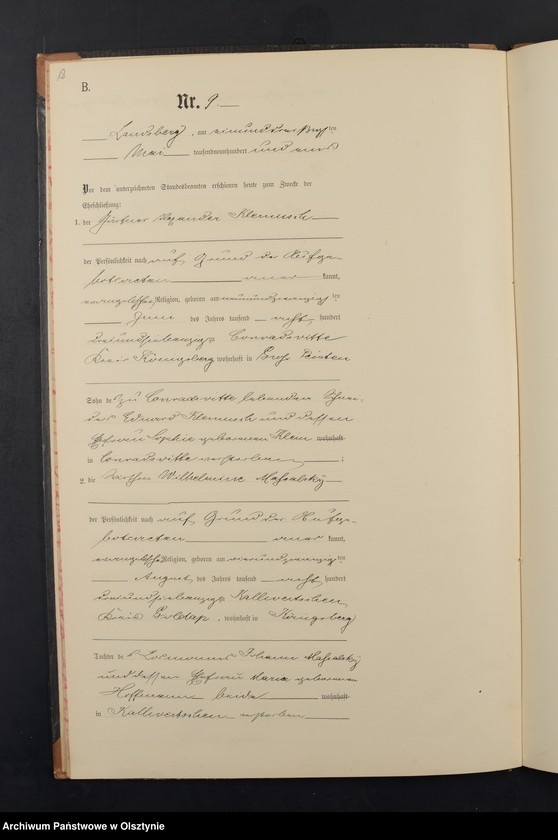 B.
Nr. 9.
Landsberg, am einunddreißigsten
Mai tausendneunhundert und eins
Vor dem unterzeichneten Standesbeamten erschienen heute zum Zwecke der
Eheschließung:
1. der Gärtner Klemusch
der Persönlichkeit nach auf Grund der Aufge-
botsacten aner kannt,
evangelischer Religion, geboren am neunundzwanzigsten
Juni des Jahres tausend acht hundert
dreiundsiebenzig Conradswitte
Kreis Königsberg wohnhaft in Groß Peisten
Sohn des zu Conradswitte lebenden Schnei-
ders Eduard Klemusch und dessen
Ehefrau Sophie geborenen Klein wohnhaft
in Conradswitte verstorben;
2. die Wilhelmine
der Persönlichkeit nach auf Grund der Aufge-
botsacten aner kannt,
evangelischer Religion, geboren am vierundzwanzigsten
August des Jahres tausend acht hundert
dreiundsiebenzig
Kreis Goldap, wohnhaft in Königsberg
Tochter des Johann
und dessen Ehefrau Maria geborenen
Hoffmann beide wohnhaft
in verstorben
Archiwum Państwowe w Olsztynie